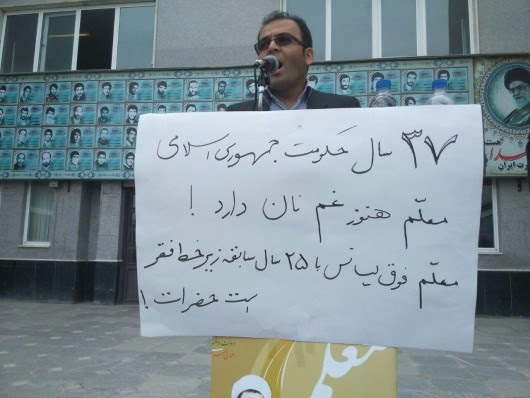 ۳۷ سال حکومت جمهوری اسلامی
معلّم هنوز غم نان دارد !
معلّم فوق لیسانس با ۲۵ سال سابقه زیر خط فقر
است حضرات !
معلم